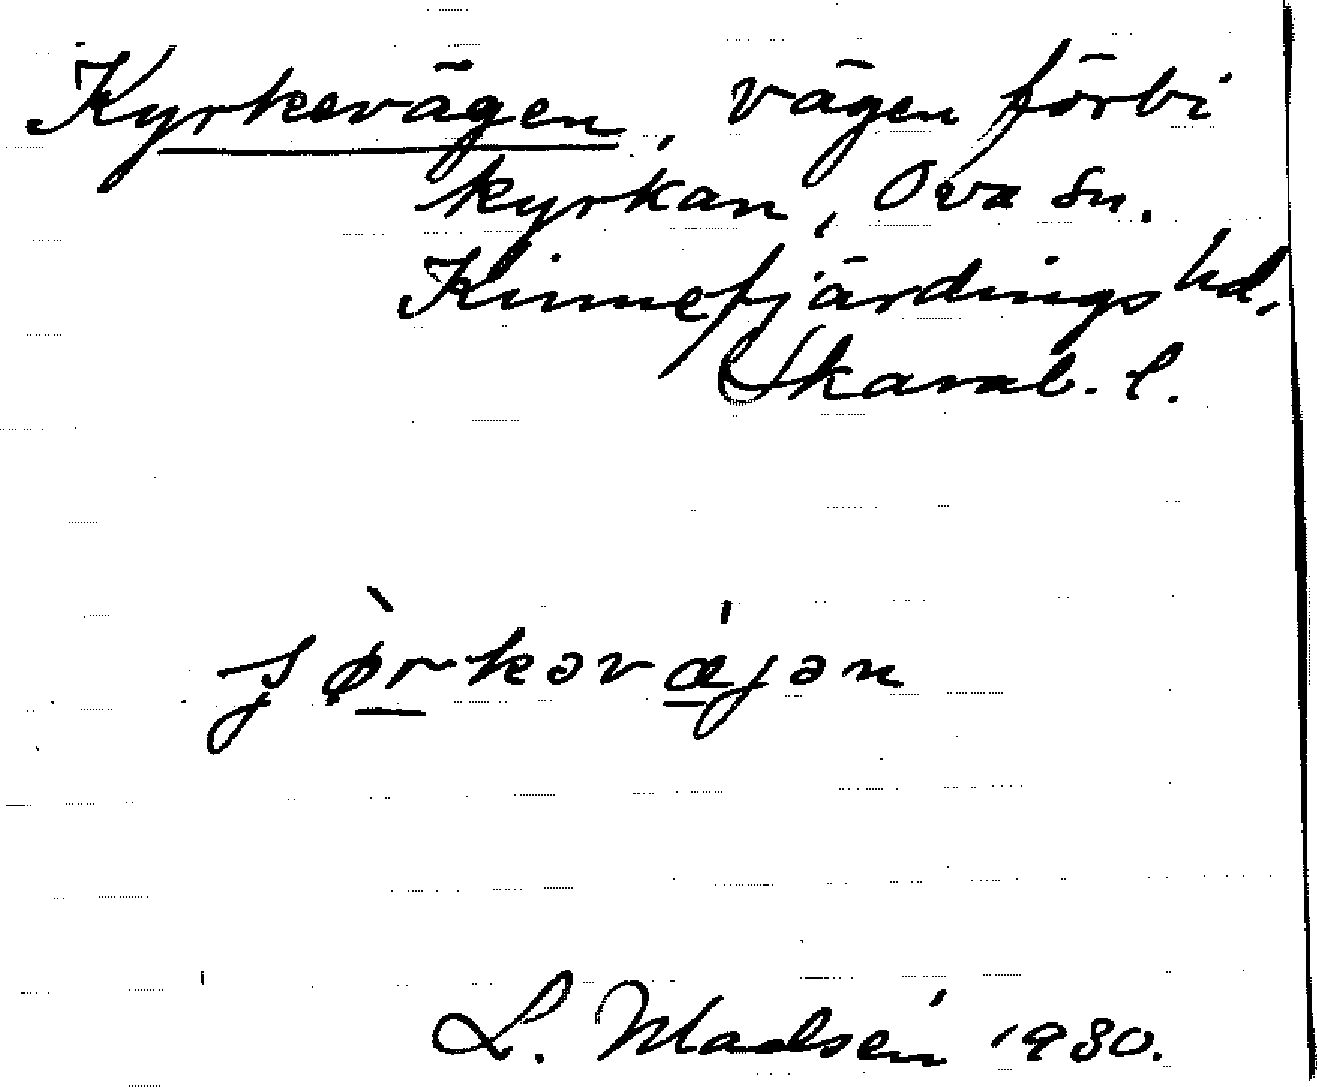 Kyrkevägen, vägen förbi
kyrkan, Ova sn.
Kinnefjärdings hd.
Skarab. l.
ʃørkəvæjən
L. Madsén 1930.